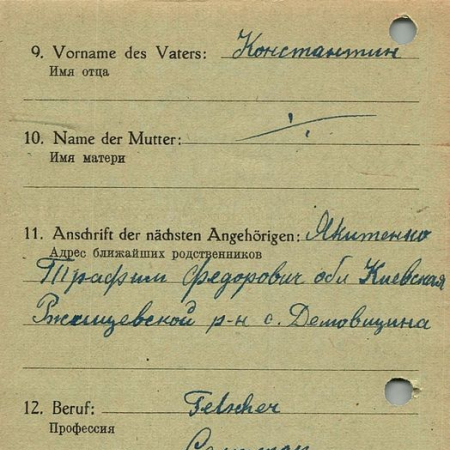 9. Vorname des Vaters: Константин
Имя отца
10. Name der Mutter:
Имя матери
11. Anschrift der nächsten Angehörigen: Якитенко
Адрес ближайших родственников
Трафим Федорович обл Киевская
Ржищевской р-н с. Демовщина
12. Beruf: Felscher
Профессия